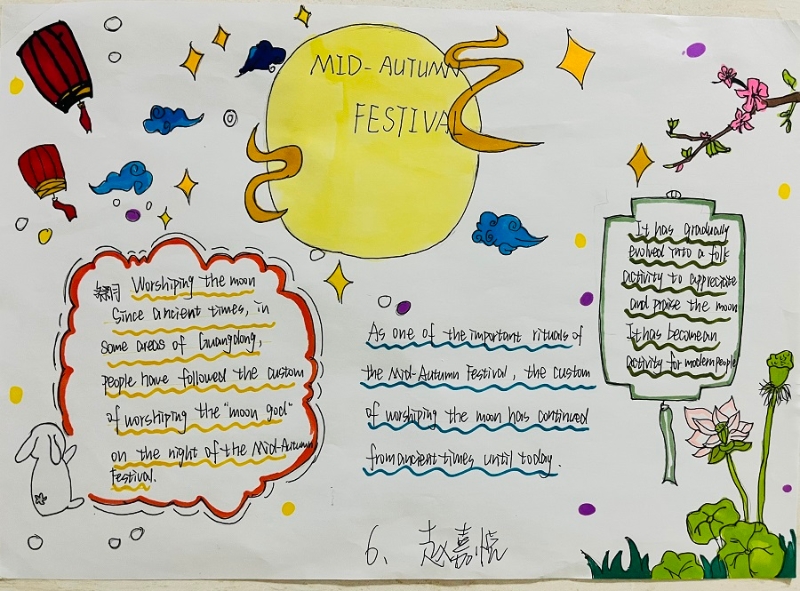 MID-AUTUMN
FESTIVAL
祭月 Worshiping the moon
Since ancient times, in
some areas of Guangdong,
people have followed the custom
of worshiping the "moon god"
on the night of the Mid-Autumn
Festival.
As one of the important rituals of
the Mid-Autumn Festival, the custom
of worshiping the moon has continued
from ancient times until today.
It has gradually
evolved into a folk
activity to appreciate
and praise the moon
It has become an
activity for modern people
6、赵嘉悦